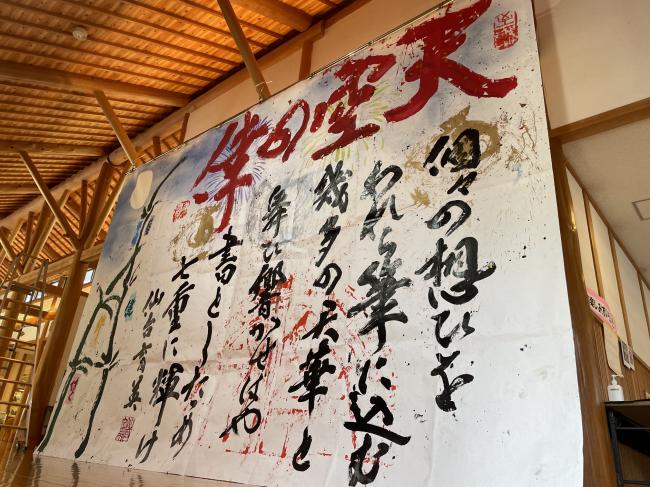 天空の
個々の想ひを
われら筆に込む
幾多の天華と
響かせばや
書としたため
七重に輝け
仙台育英